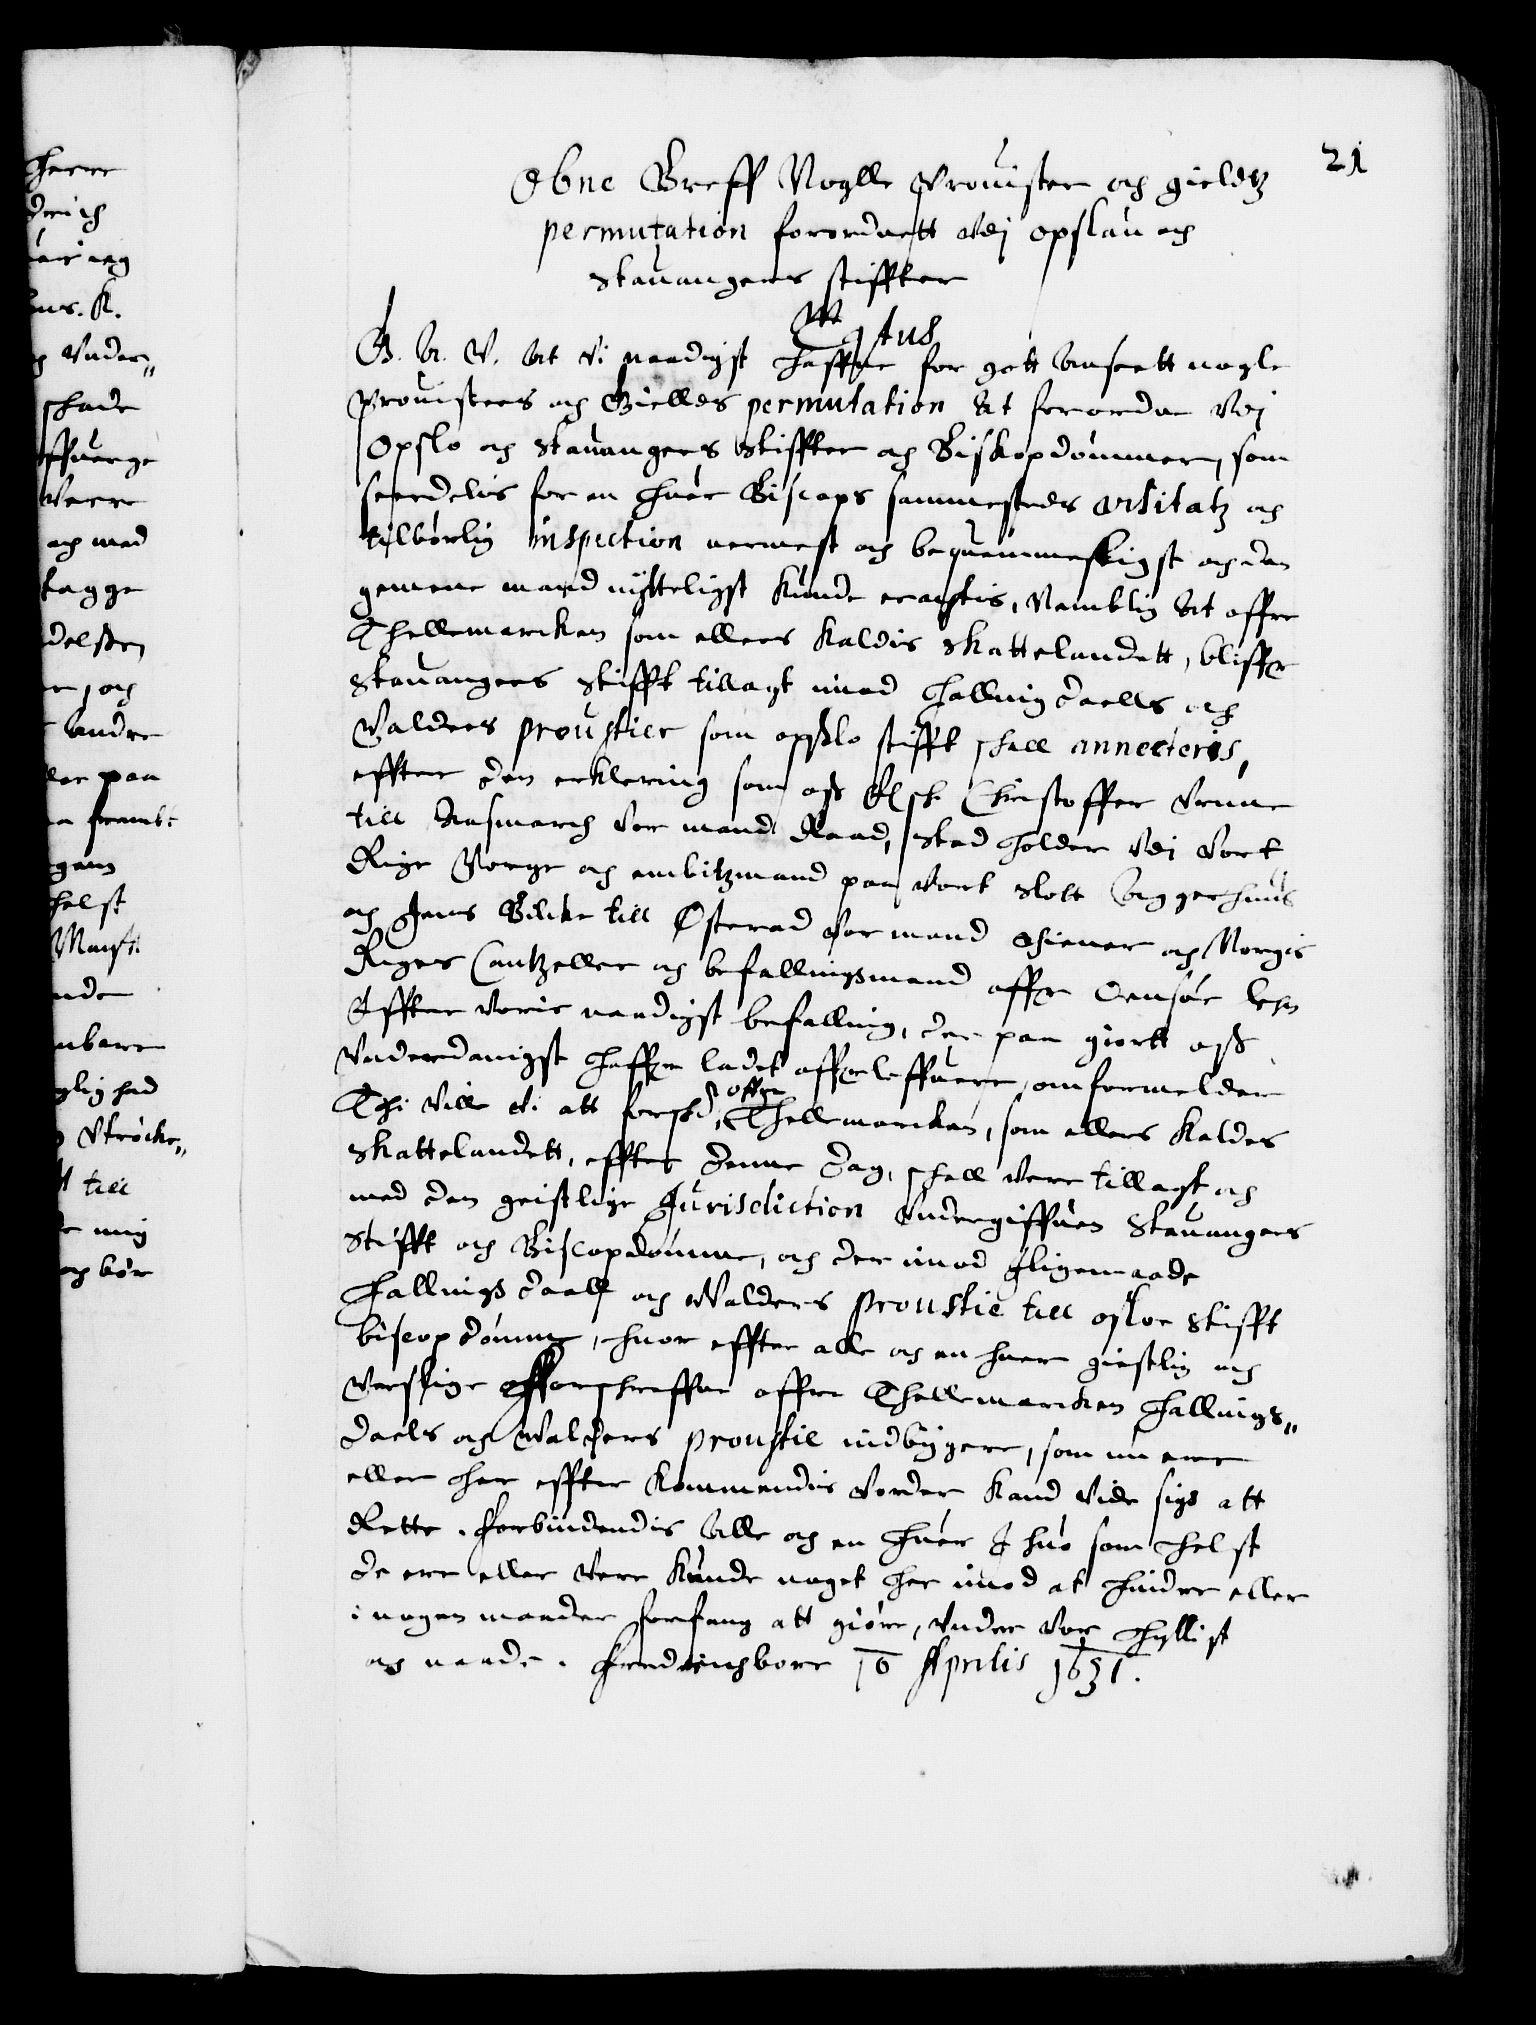 21
Obne Breff Noglle Prouister och gieldtz
permutation forordnett vdj opslau och
Stauangers stiffter
G. A. V. At vi naadigst haffue for gott anseett nogle
Prouisters och Gielders permutation At forordne vdj
Opslo och Stauangers Stiffter och Biskopdommer, som
seerdelis for en huer Biscops sammesteds visitatz och
tilbørlig inspection nermest och bequemmeligst och den
gemene mand nytteligst kunde eragtis, Namblig At offre
Thellemarcken som ellers kaldis Skattelandett, bliffr
Stauangers Stifft tillagt imod Hallingdaells och
Valders proustier som opslo stifft skall annecteris,
effter den erklering som oss Elsk. Christoffer Vrnne
till Aasmarch vor mand Raad, Stadholder vdi vort
Rige Norge och embitzmand paa vort Slott Aggershuus
och Jens Bilche till Østerad vor mand thiener och Norgis
Riges Cantzeller och befallingsmand offr Onsøe lehn
Effter voris naadigst befalling, der paa giortt oss
vnderdanigst haffr ladet offrleffuere, omformelder
Thi ville vi att forskd, offre Thellemarcken, som ellers kaldes
Skattelandett, effter denne dag, skall vere tillagt och
med den geistlige Jurisdiction vndergiffuen Stauangers
Stifft och Biscopdomme, och der imod ligemaade
Hallingsdaall och Walders proustie till osloe Stifft
biscopdomme, huor effter alle och en huer giestlig och
verslige forschreffne offre Thellemarcken Hallings„
daels och Walders proustie indbygere, som nu ere
eller her effter kommendis vorder kand vide sigs att
Rette. Forbiudendis Alle och en huer J huo som helst
de ere eller vere kunde noget her imod at hindre eller
i nogen maader forfang att giøre, vnder vor hyllist
och naade. Fredrichborr 10 Aprilis 1631.